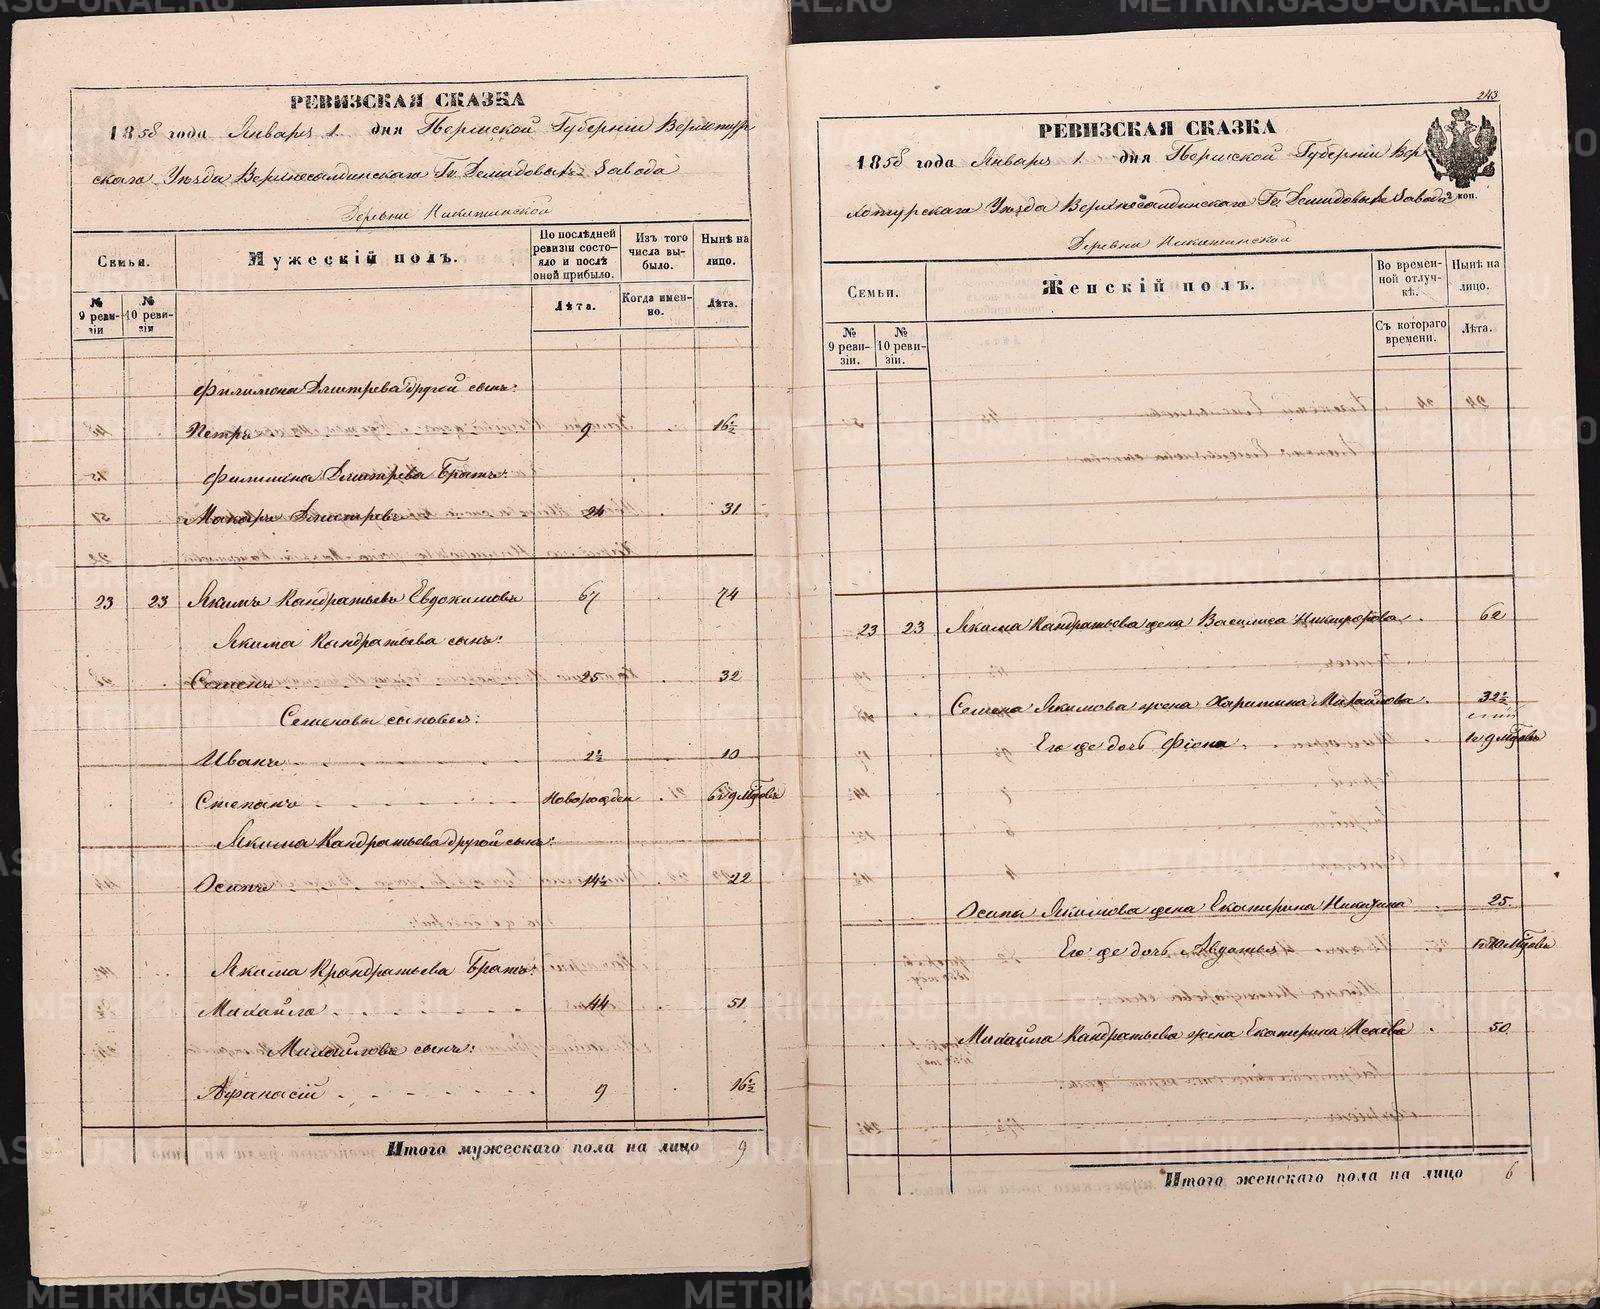 РЕВИЗСКАЯ СКАЗКА
1858 года Января 1. дня Пермской Губерніи Верхотур
скаго Уѣзда Верхнесалдинскаго Гг. Демидовыхъ Завода
Деревни Никитинской
Семьи.
Мужескій полъ.
По послѣдней ревизіи состояло и послѣ оней прибыло.
Изъ того числа выбыло.
Нынѣ на лицо.
№ 9 ревизіи
№ 10 ревизіи
Лѣта.
Когда именно.
Лѣта.
Филимона Дмитрева другой сынъ:
Петръ 9 16½
Филимона Дмитрева Братъ:
Макаръ Дмитревъ 24 31
23 23 Якимъ Кандратьевъ Евдокимовъ 67 74
Якима Кандратьева сынъ:
Семенъ 25 32
Семеновы сыновья:
Иванъ 2½ 10
Степанъ Новорожден 6 9 м.
Якима Кандратьева другой сынъ:
Осипъ 14½ 22
Якима Крандратьева Братъ:
Михайло 44 51
Михайловъ сынъ:
Афанасій 9 16½
Итого мужескаго пола на лицо 9
243
РЕВИЗСКАЯ СКАЗКА
1858 года Января 1. дня Пермской Губерніи Вер
хотурскаго Уѣзда Верхнесалдинскаго Гг. Демидовыхъ Завода
2 коп.
Деревни Никитинской
Семьи.
Женскій полъ.
Во временной отлучкѣ.
Нынѣ на лицо.
№ 9 ревизіи.
№ 10 ревизіи.
Съ котораго времени.
Лѣта.
23 23 Якима Кандратьева жена Василиса Никифорова 62
Семена Якимова жена Харитина Михайлова 32½
Его же дочь Фіона 9
Осипа Якимова жена Екатерина Никитина 25.
Его же дочь Авдотья
Михайла Кандратьева жена Екатерина Исаева 50
Итого женскаго пола на лицо 6
METRIKI.GASO-URAL.RU